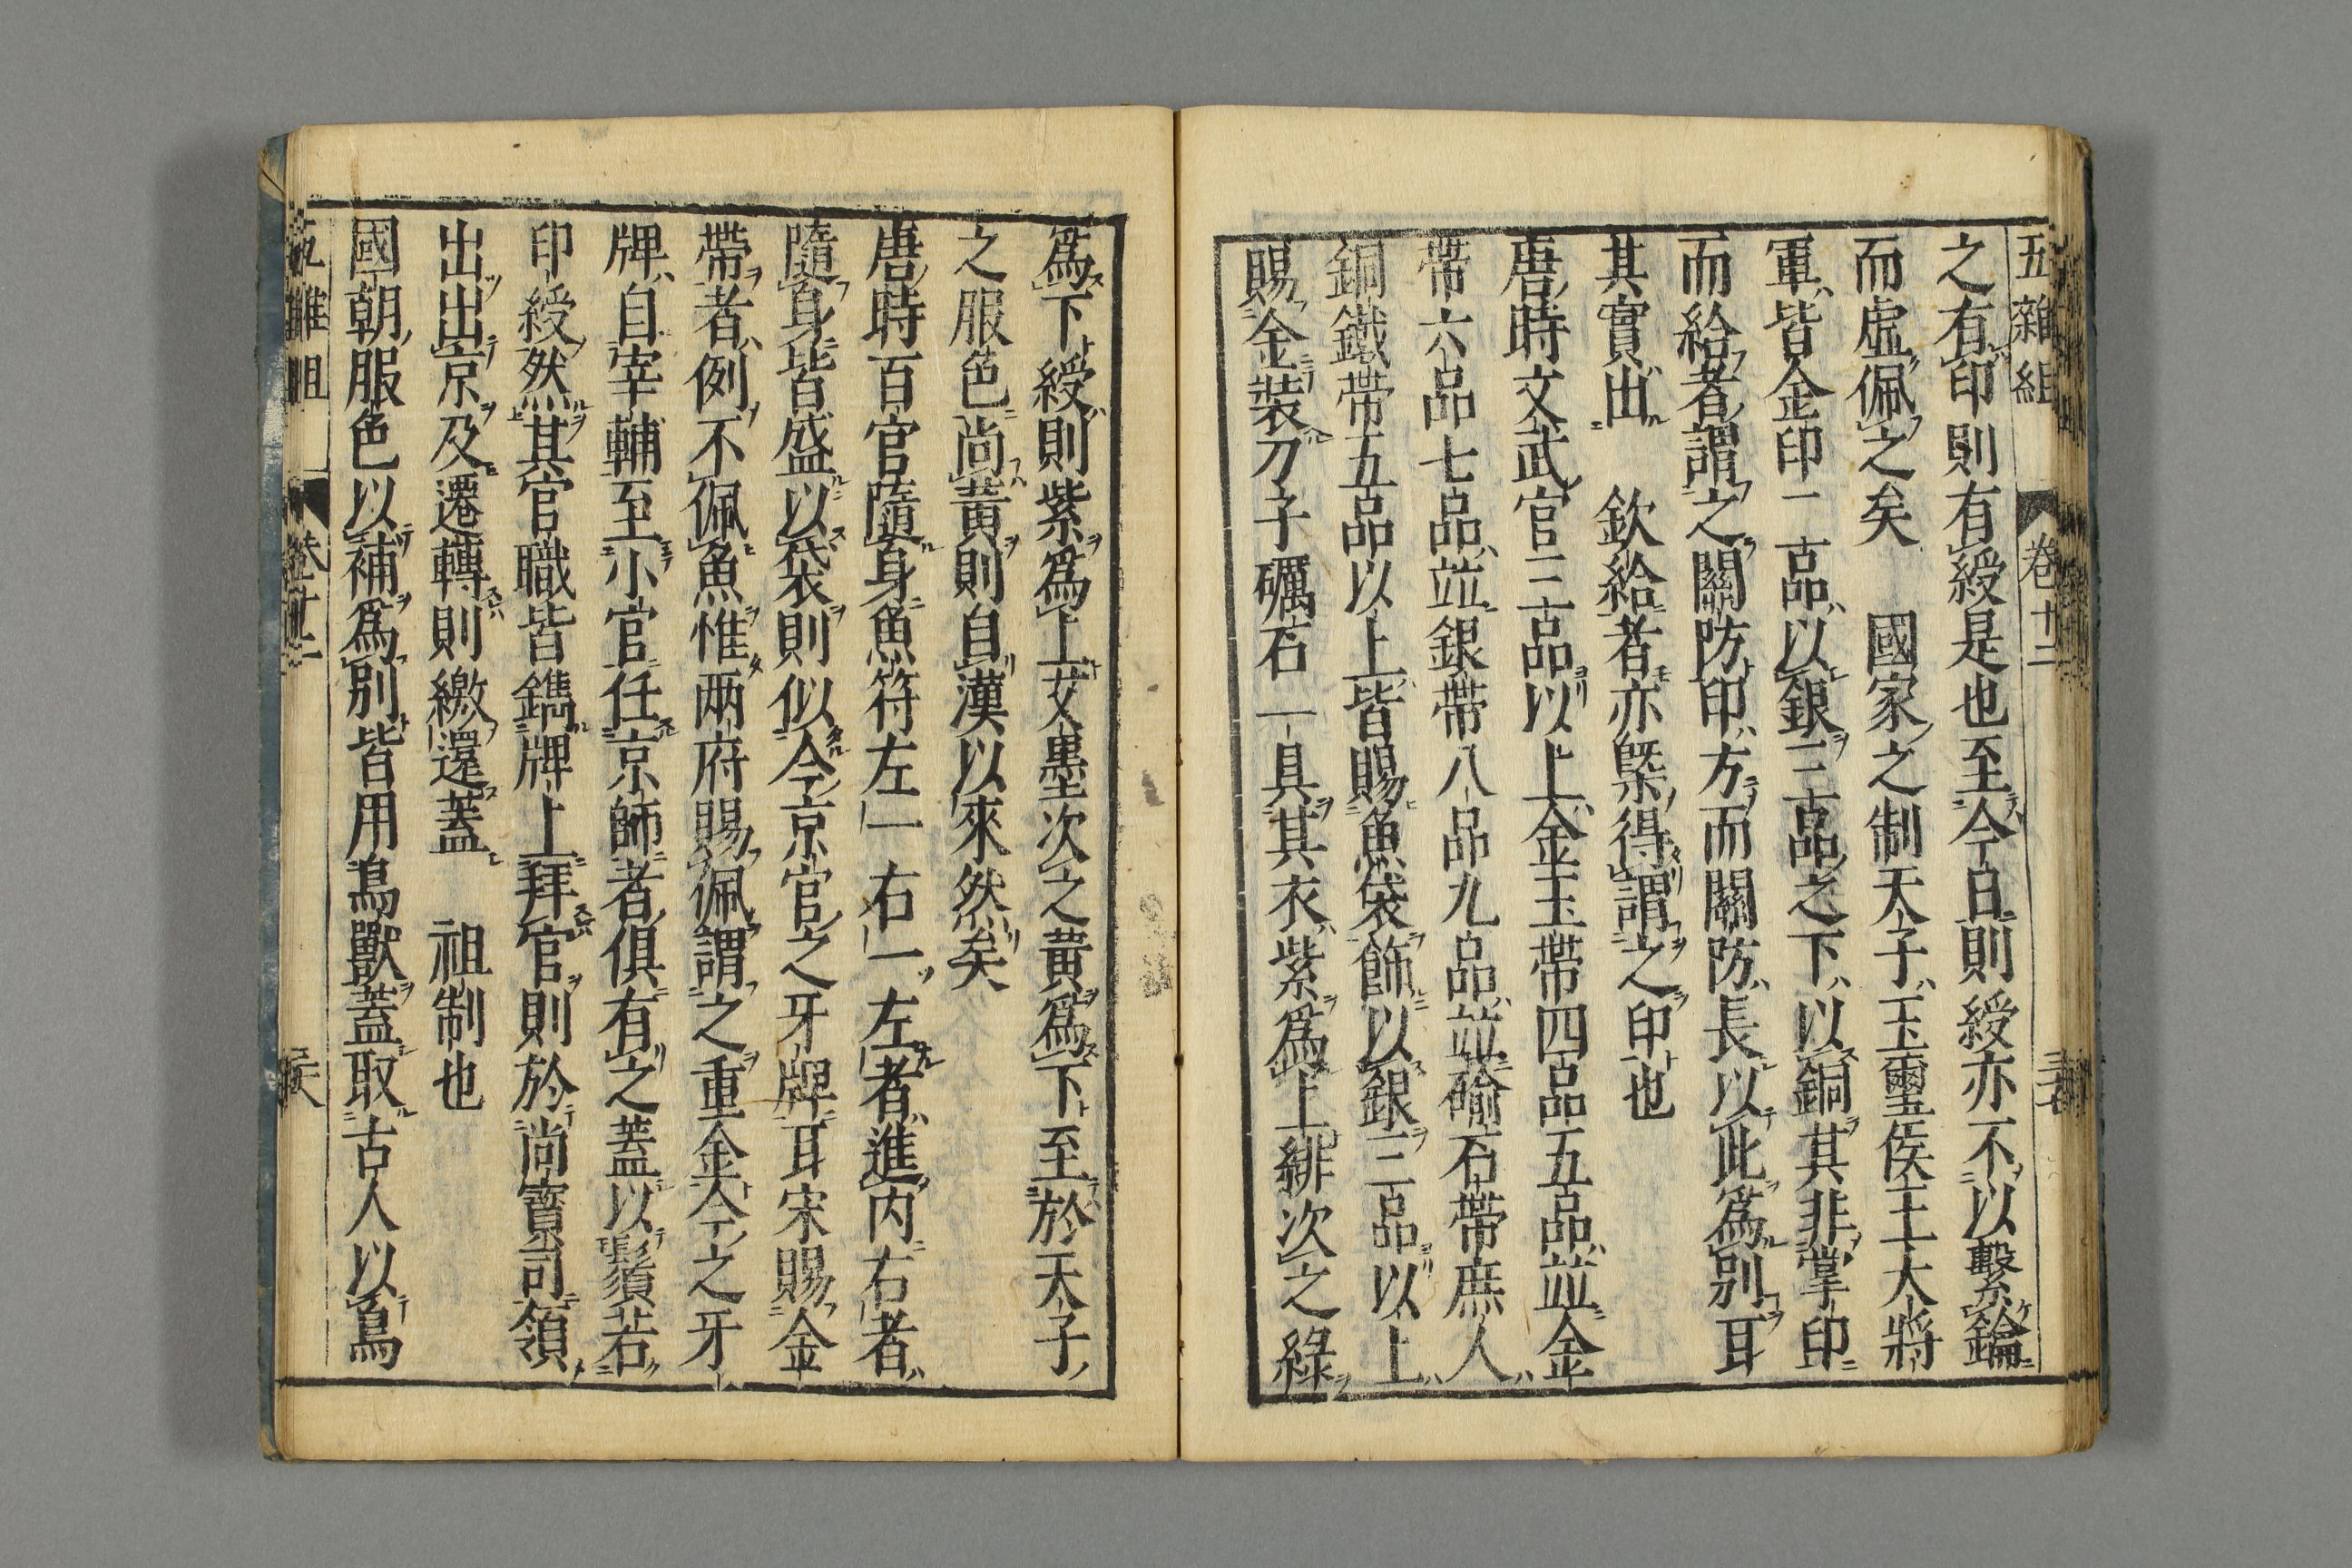 五雜組 卷十二 三七
之有印則有綬是也至今日則綬亦不以繫鑰
而虛佩之矣 國家之制天子玉璽侯王大將
軍皆金印一二品以銀三品之下以銅其非掌印
而給者謂之關防印方而關防長以此爲別耳
其實出 欽給者亦槩得謂之印也
唐時文武官三品以上金玉帶四品五品並金
帶六品七品並銀帶八品九品並鍮石帶庶人
銅鐵帶五品以上皆賜魚袋飾以銀三品以上
賜金裝刀子礪石一具其衣紫爲上緋次之綠
爲下綬則紫爲上艾墨次之黃爲下至於天子
之服色尚黃則自漢以來然矣
唐時百官隨身魚符左一右一左者進內右者
隨身皆盛以袋則似今京官之牙牌耳宋賜金
帶者例不佩魚惟两府賜佩謂之重金今之牙
牌自宰輔至小官任京師者俱有之蓋以鬚若
印綬然其官職皆鐫牌上拜官則於尚寶司領
出出京及遷轉則繳還蓋 祖制也
國朝服色以補爲別皆用鳥獸蓋取古人以鳥
五雜組 卷十二